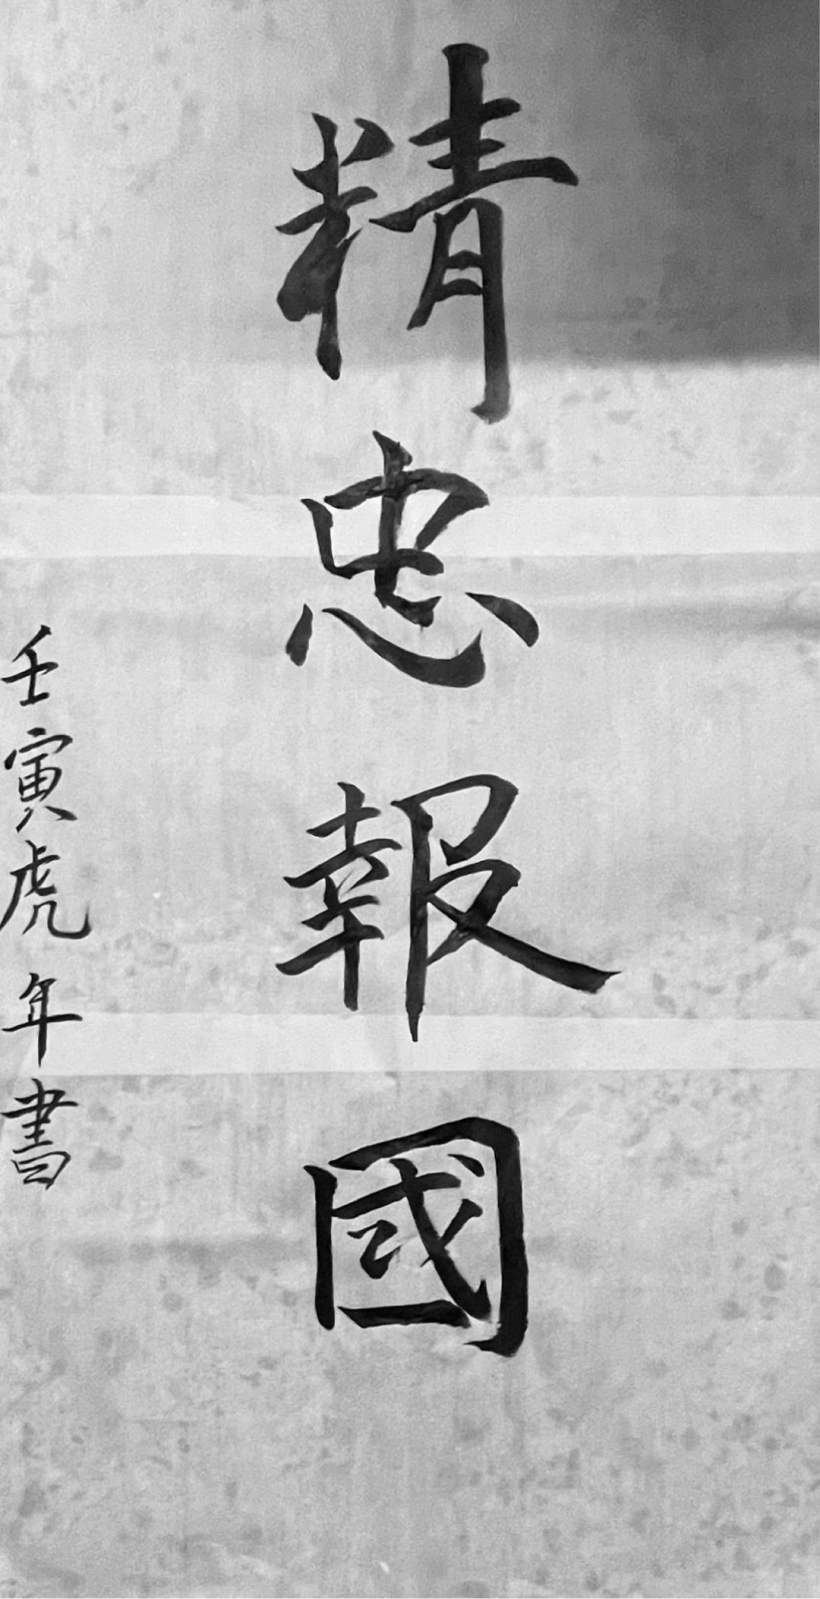 精忠報國
壬寅虎年書